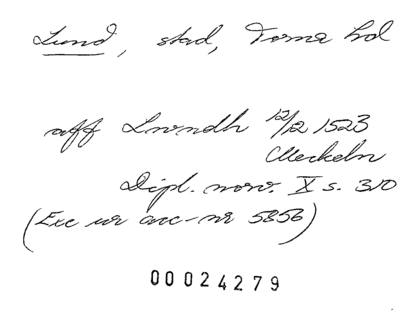 Lund, stad, Torna hd
aff Lwndh 12/2 1523
Meckeln
Dipl. norv. X s. 310
(Exc ur acc-nr 5856)
00024279